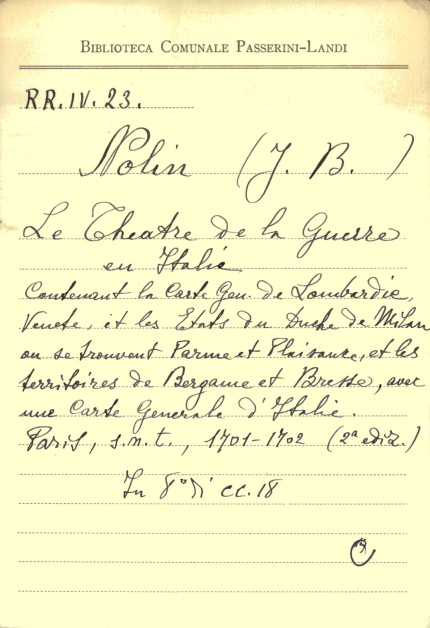 BIBLIOTECA COMUNALE PASSERINI-LANDI
RR.IV.23.
Nolin (J. B.)
Le Theatre de la Guerre
en Italie
Contenant la Carte Gen. de Lombardie,
Venete, et les Etats du Duche de Milan
ou se trouvent Parme et Plaisance, et les
territoires de Bergame et Bresse, avec
une Carte Generale d'Italie.
Paris, s.n.t., 1701-1702 (2ª ediz.)
In 8° di cc. 18